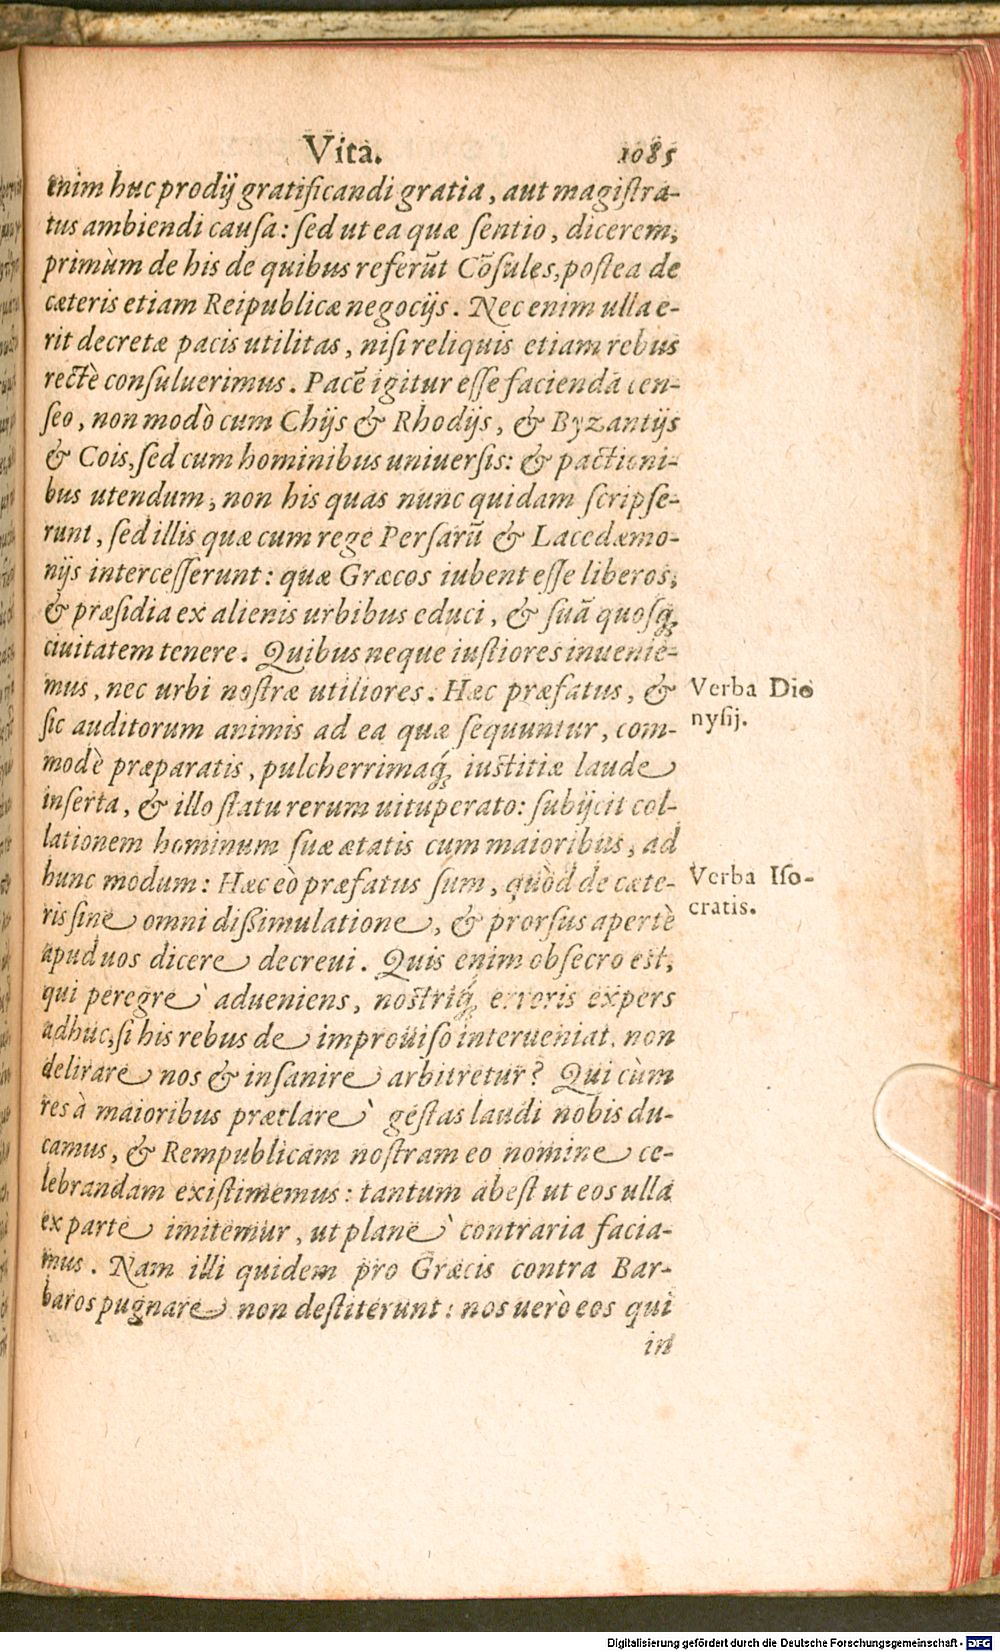 Vita. 1085
enim huc prodij gratificandi gratia, aut magistra-
tus ambiendi causa: sed ut ea quæ sentio, dicerem,
primùm de his de quibus referūt Cōsules, postea de
cæteris etiam Reipublicæ negocijs. Nec enim ulla e-
rit decretæ pacis utilitas, nisi reliquis etiam rebus
rectè consuluerimus. Pacē igitur esse facienda cen-
seo, non modò cum Chijs & Rhodijs, & Byzantijs
& Cois, sed cum hominibus uniuersis: & pactioni-
bus utendum, non his quas nunc quidam scripse-
runt, sed illis quæ cum rege Persarū & Lacedæmo-
nijs intercesserunt: quæ Græcos iubent esse liberos,
& præsidia ex alienis urbibus educi, & suā quosq;
ciuitatem tenere. Quibus neque iustiores inuenie-
mus, nec urbi nostræ utiliores. Hæc præfatus, &
sic auditorum animis ad ea quæ sequuntur, com-
modè præparatis, pulcherrimaq́; iustitiæ laude
inserta, & illo statu rerum uituperato: subijcit col-
lationem hominum suæ ætatis cum maioribus, ad
hunc modum: Hæc eò præfatus sum, quòd de cæte-
ris sine omni dissimulatione, & prorsus apertè
apud uos dicere decreui. Quis enim obsecro est,
qui peregrè adueniens, nostriq́; erroris expers
adhuc, si his rebus de improuiso interueniat, non
delirare nos & insanire arbitretur? Qui cùm
res à maioribus præclarè gestas laudi nobis du-
camus, & Rempublicam nostram eo nomine ce-
lebrandam existimemus: tantum abest ut eos ulla
ex parte imitemur, ut planè contraria facia-
mus. Nam illi quidem pro Græcis contra Bar-
baros pugnare non destiterunt: nos uerò eos qui
in
Verba Dio
nysij.
Verba Iso-
cratis.
Digitalisierung gefördert durch die Deutsche Forschungsgemeinschaft - DFG